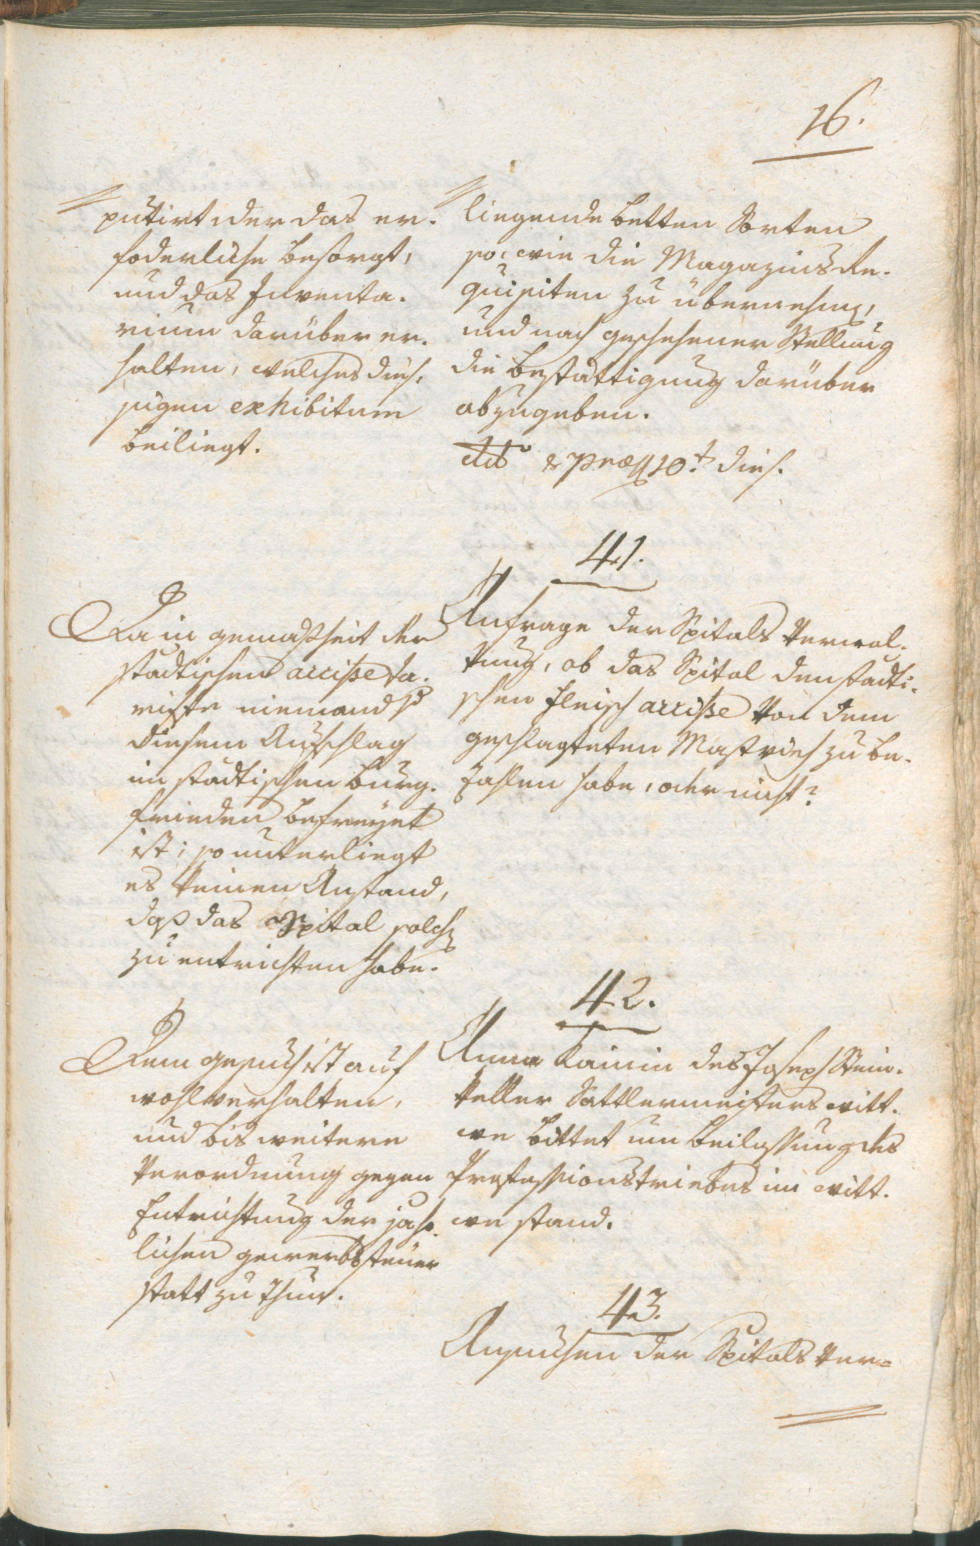 16.
putirt oder das er-
foderliche besorgt,
und das Inventa-
rium darüber er-
halten, welches dies-
jigen exhibitum
beiliegt.
liegende Betten Sorten
so, wie die Magazins Re-
quisiten zu übernehmen,
und nach geschehener Stellung
die Bestättigung darüber
abzugeben.
dto & Præs 10t dies.
41.
Da in gemaßheit der
städtischen accißeta-
riffe niemand
diesem Aufschlag
im städtischen Burg-
frieden befreyet
ist; so unterliegt
es keinen Anstand,
daß das Spital solche
zu entrichten habe.
Anfrage der Spitals Verwal-
tung, ob das Spital den städti-
schen Fleisch acciße von dem
geschlagteten Mastvieh zu be-
zahlen habe, oder nicht?
42.
Dem gesuch ist auf
wohlverhalten,
und bis weitere
Verordnung gegen
Entrichtung der jähr-
lichen gewerbssteuer
statt zu thun.
Anna Kainin des Joseph Stein-
keller Sattlermeisters witt-
we bittet um Beilassung des
Professionstriebes im witt-
we stand.
43.
Ansuchen der Spitals Ver-